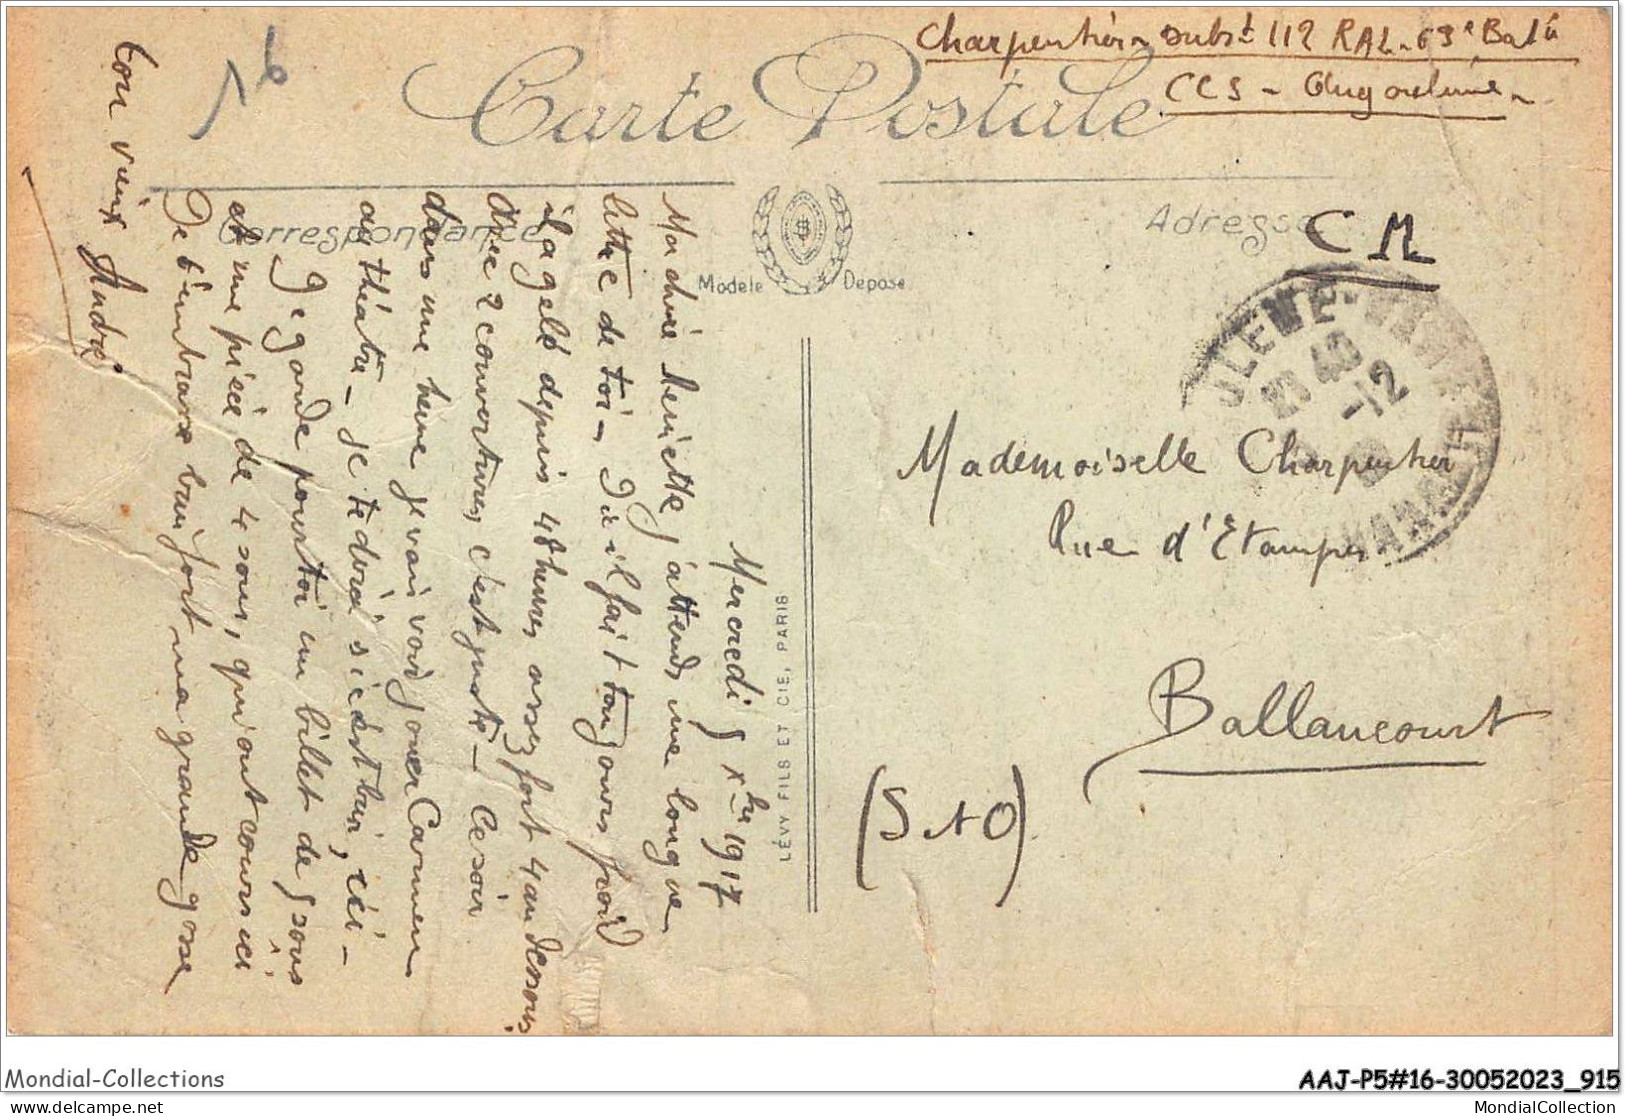 Charpentier - subst 112 RAL - 63e Batie
CCS - Angoulème -
16
Carte Postale
Correspondance
Adresse
CM
Modèle Déposé
LÉVY FILS ET CIE, PARIS
Mercredi 5 Xbre 1917
Ma chère Henriette, j'attends une longue
lettre de toi - Ici il fait toujours froid
il a gelé depuis 48 heures assez fort 4 au dessous
avec 2 couvertures, c'est juste - Ce soir
dans une heure je vais voir jouer Carmen
au théâtre - je te dirai si c'est bien, ici -
Je garde pour toi un billet de 5 sous
et une pièce de 4 sous, qui ont cours ici
Je t'embrasse bien fort ma grande gosse
Ton vieux André
40
-12
Mademoiselle Charpentier
Rue d'Etampes
Ballancourt
(S et O)
Mondial-Collections
AAJ-P5#16-30052023_915
www.delcampe.net
MondialCollection